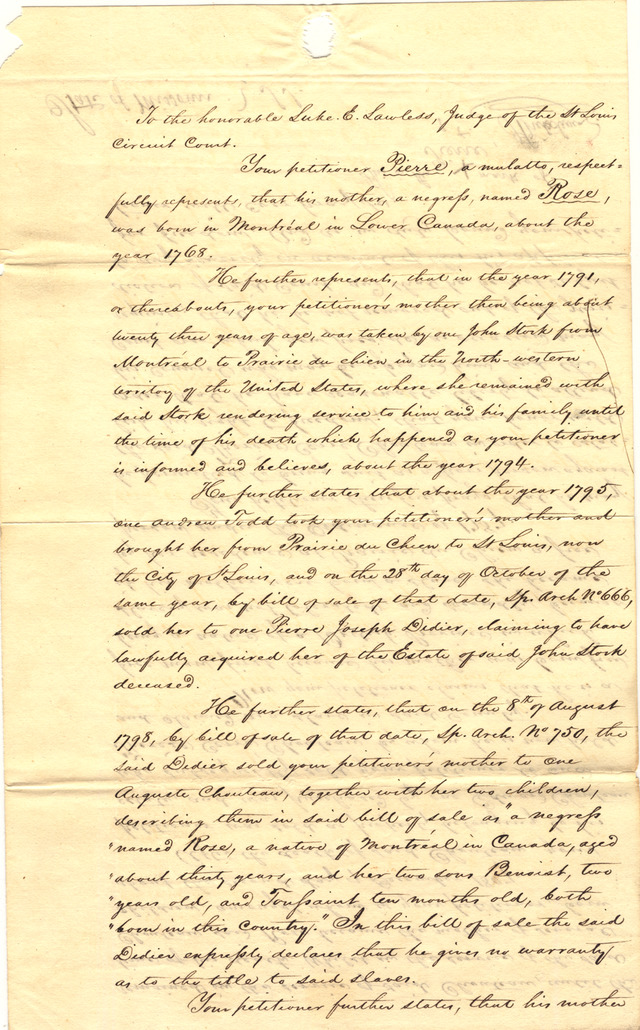 To the honorable Luke. E. Lawless, Judge of the St Louis
Circuit Court.
Your petitioner Pierre, a mulatto, respect=
fully represents, that his mother, a negress, named Rose,
was born in Montréal in Lower Canada, about the
year 1768.
He further represents, that in the year 1791,
or thereabouts, your petitioner's mother then being about
twenty three years of age, was taken by one John Stork from
Montréal to Prairie du chien in the North-western
territory of the United States, where she remained with
said Stork rendering service to him and his family until
the time of his death which happened as your petitioner
is informed and believes, about the year 1794.
He further states that about the year 1795,
one Andrew Todd took your petitioner's mother and
brought her from Prairie du Chien to St Louis, now
the City of St Louis, and on the 28th day of October of the
same year, by bill of sale of that date, Sp. Arch No 666,
sold her to one Pierre Joseph Didier, claiming to have
lawfully acquired her of the Estate of said John Stork
deceased.
He further states, that on the 8th of August
1798, by bill of sale of that date, Sp. Arch. No 750, the
said Didier sold your petitioner's mother to one
Auguste Chouteau, together with her two children,
describing them in said bill of sale as "a negress
"named Rose, a native of Montréal in Canada, aged
"about thirty years, and her two sons Benoist, two
"years old, and Toussaint ten months old, both
"born in this Country." In this bill of sale the said
Didier expressly declares that he gives no warranty
as to the title to said slaves.
Your petitioner further states, that his mother
State of Missouri